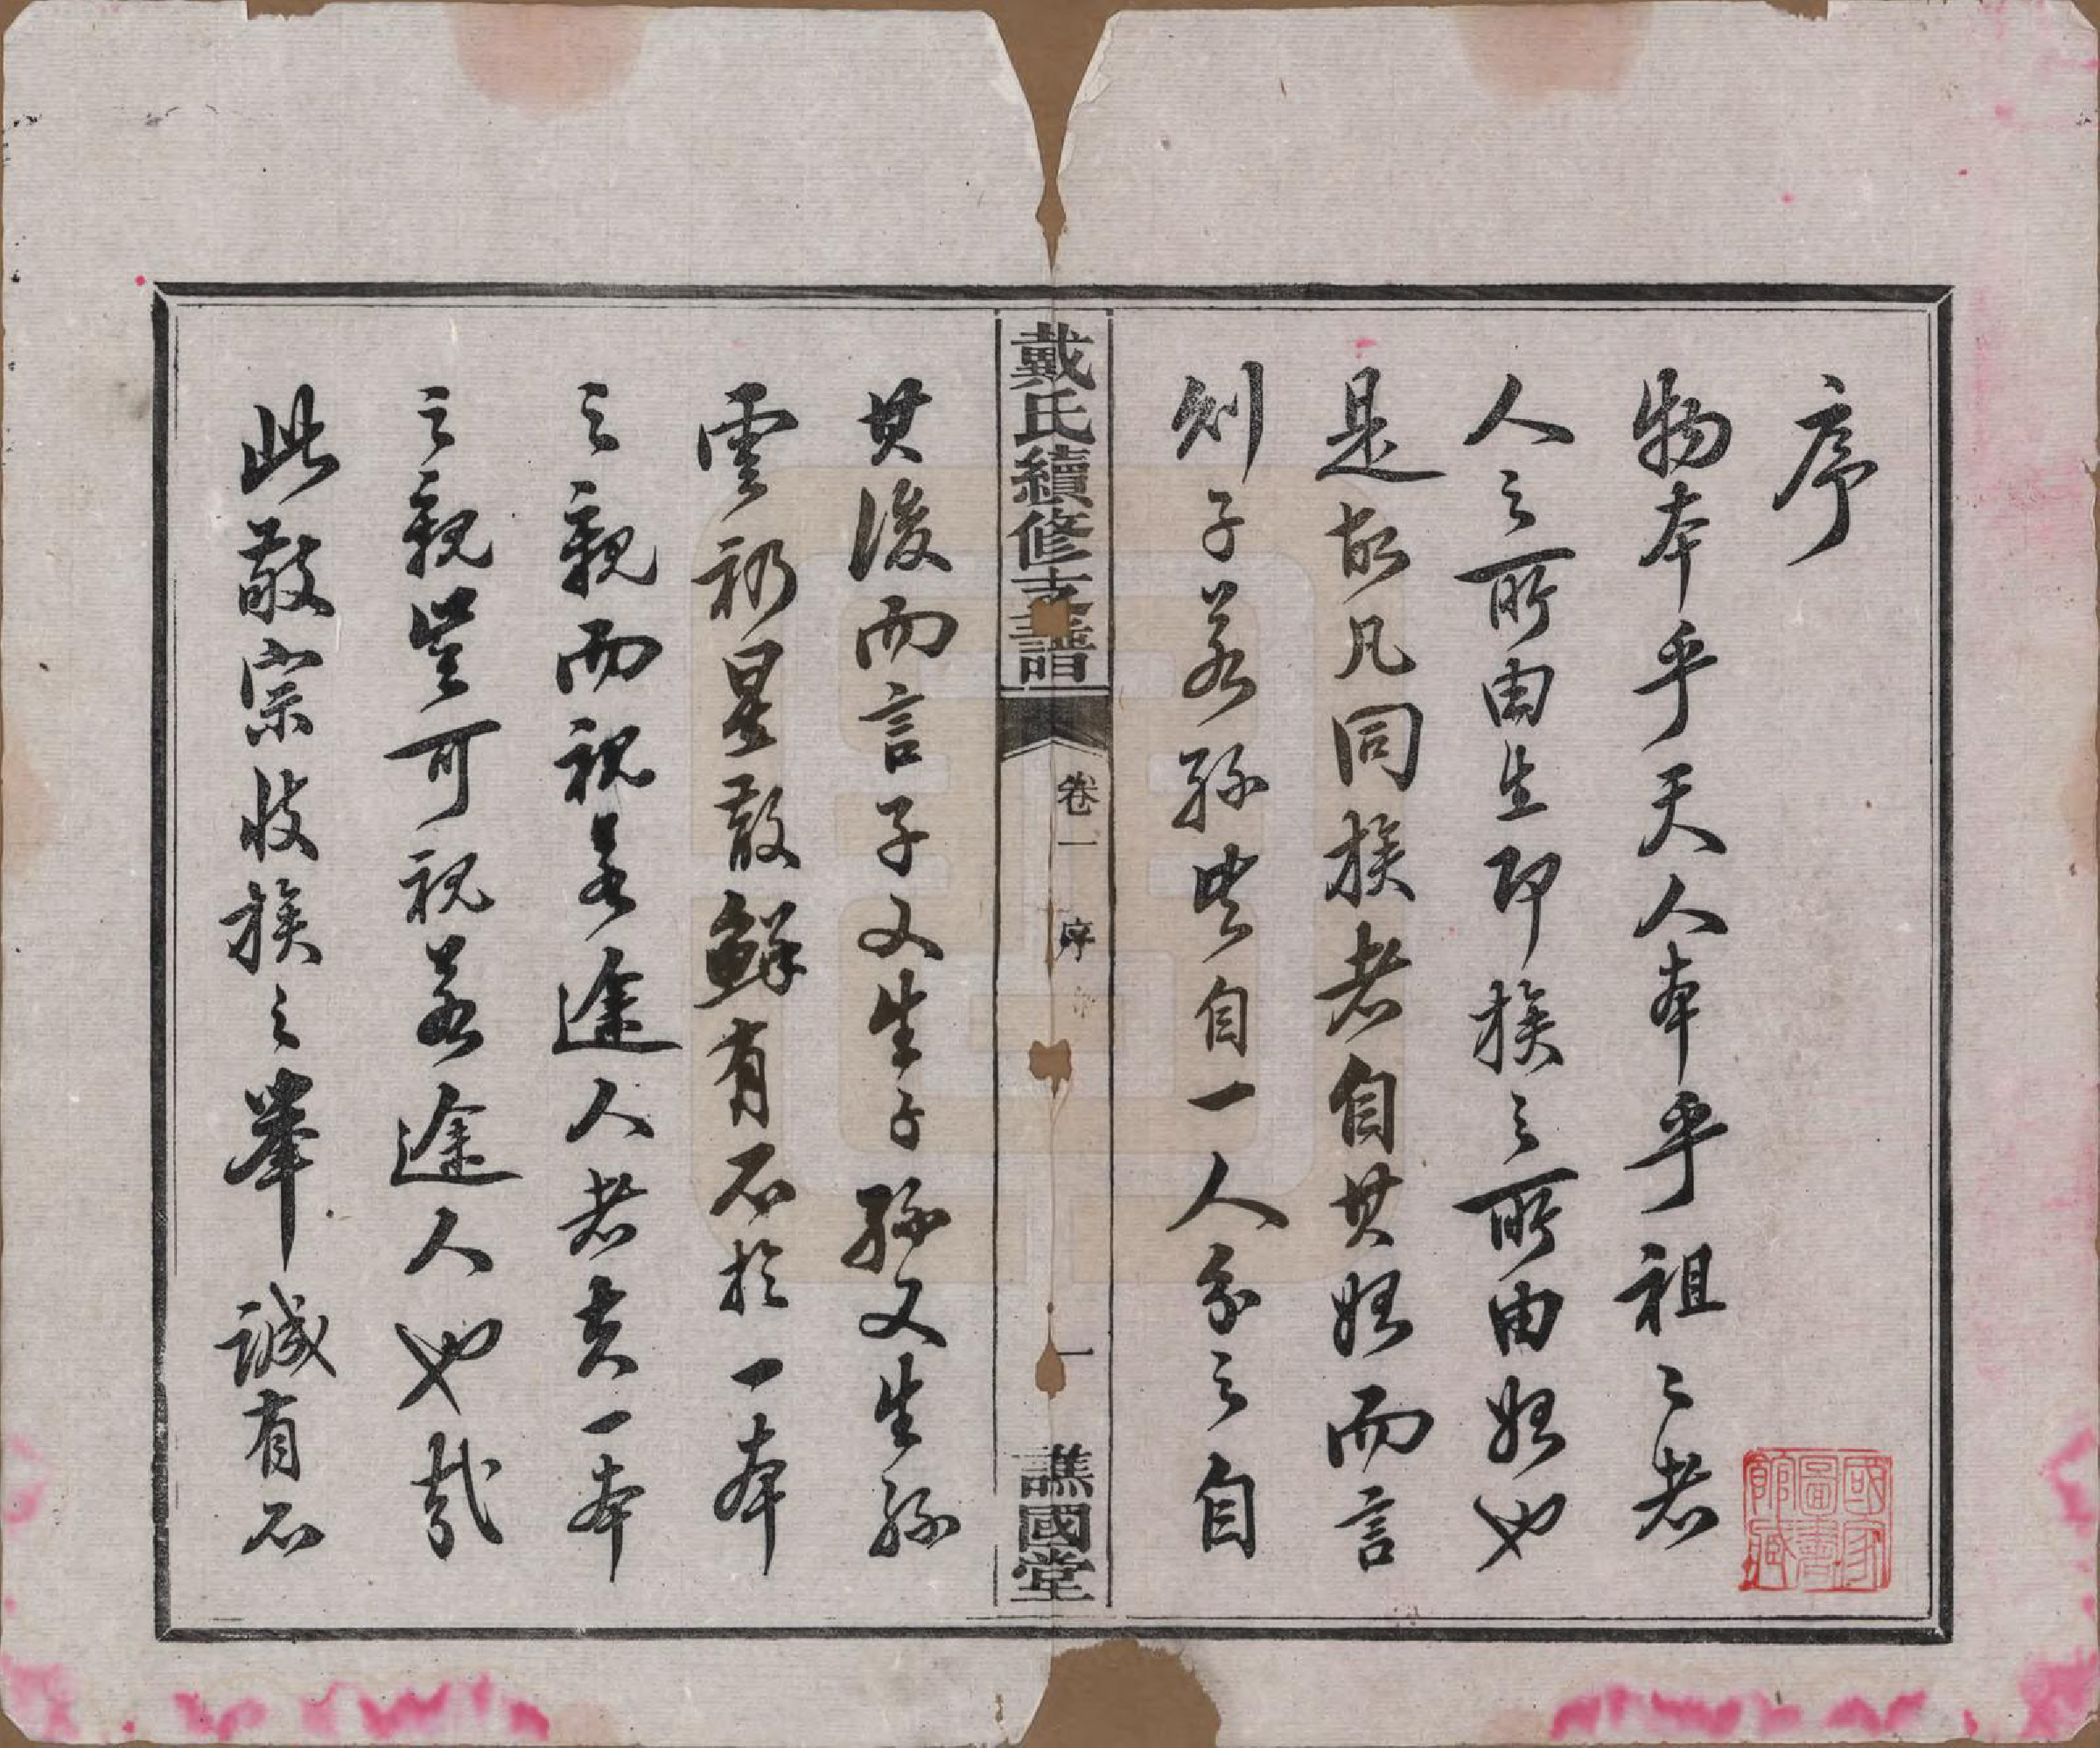 序
物本乎天人本乎祖〻者
人之所由生即族之所由始也
是故凡同族者自其始而言
則子若孫皆自一人分之自
戴氏續修支譜
卷一
序
一
譙國堂
其後而言子又生子孫又生孫
雲礽星散鮮有不於一本
之親而視若途人者夫一本
之親豈可視若途人也哉
此敬宗收族之舉誠有不
國家圖書館藏